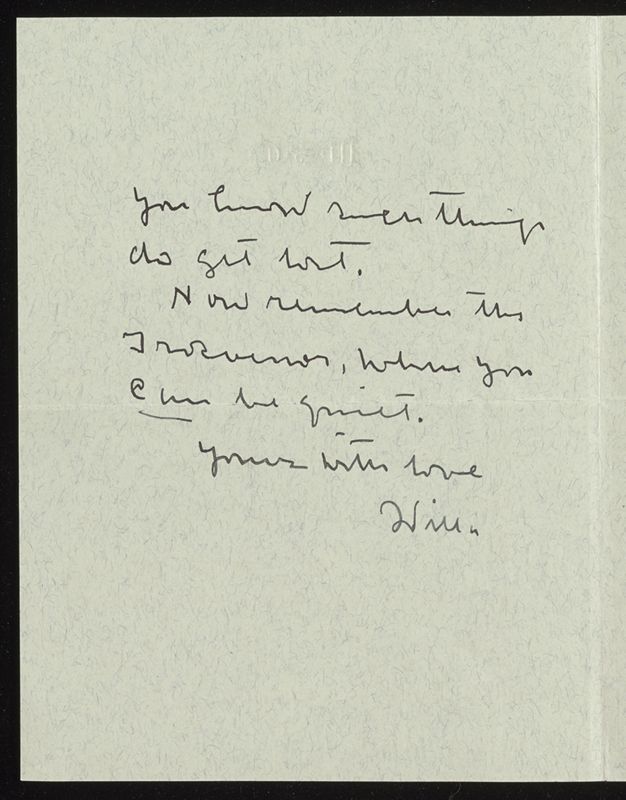 you know such things
do get lost.
Now remember the
Grosvenor, where you
can be quiet.
Yours with love
Willa